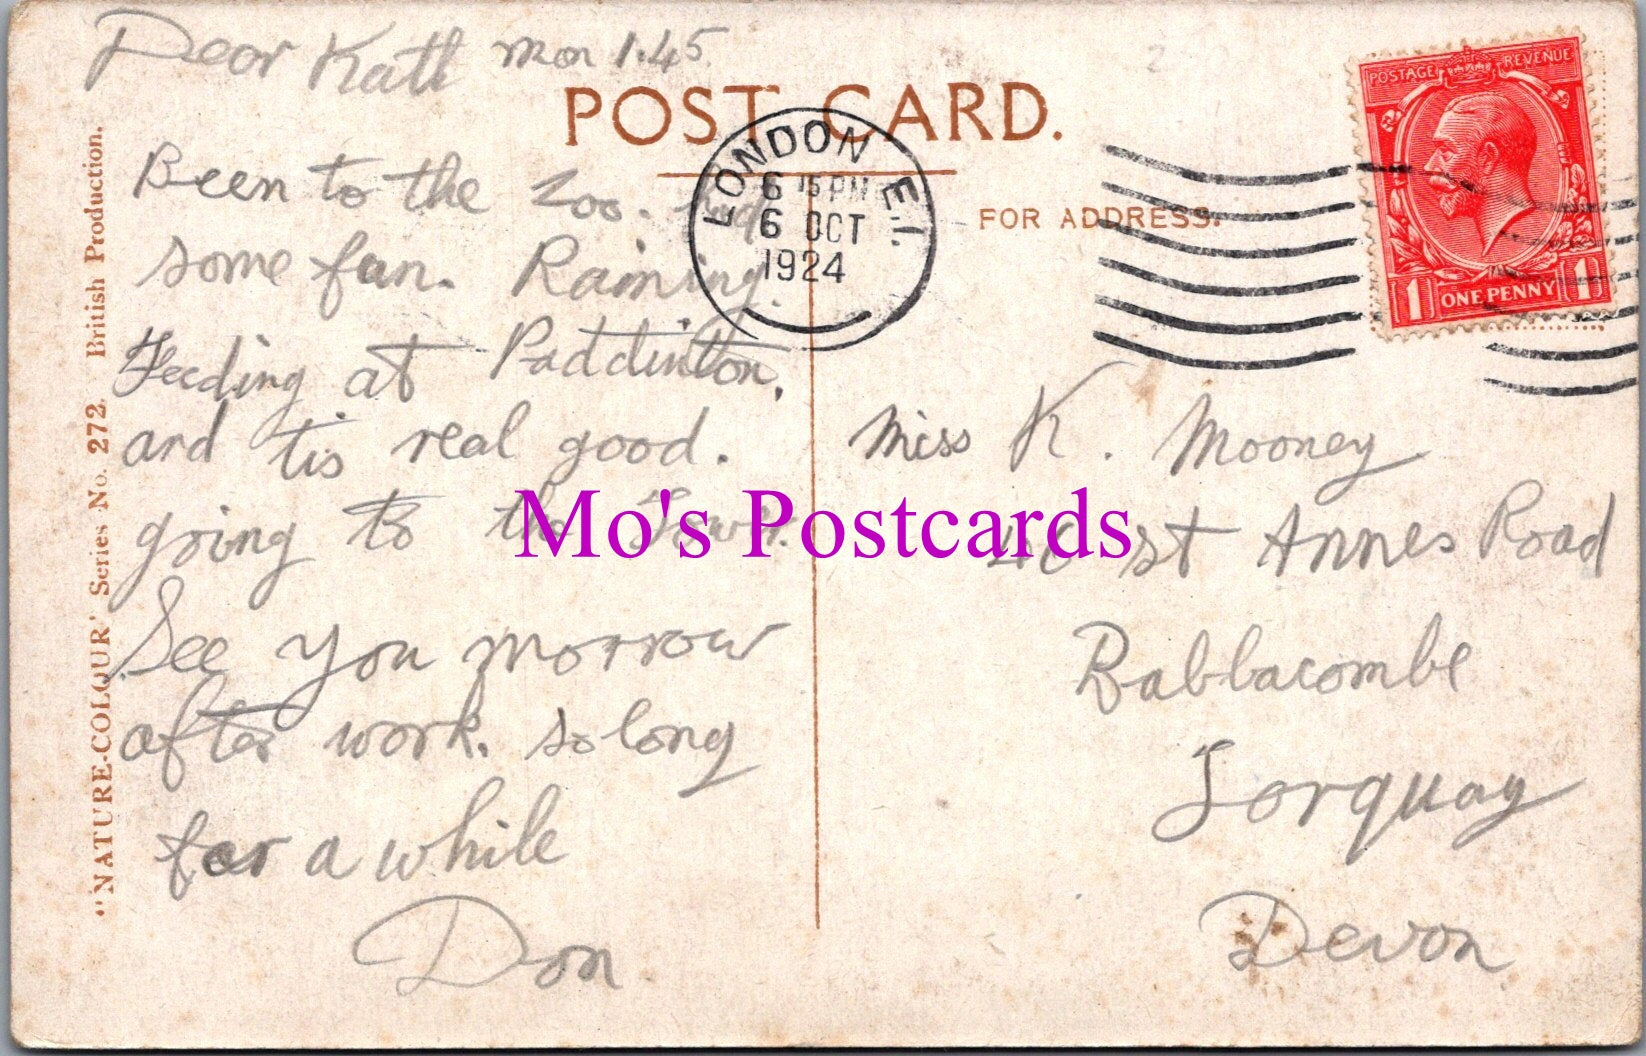 Dear Kath Mon 1.45.
POST CARD.
Been to the Zoo. Had
some fun. Raining.
Feeding at Paddinton.
and tis real good.
going to the Tower.
See you morrow
after work. so long
for a while
Don
LONDON E.1.
6 15 PM
6 OCT
1924
FOR ADDRESS.
POSTAGE REVENUE
1 ONE PENNY 1
Miss K. Mooney
46 St Annes Road
Babbacombe
Torquay
Devon
"NATURE-COLOUR' Series No. 272. British Production.
Mo's Postcards